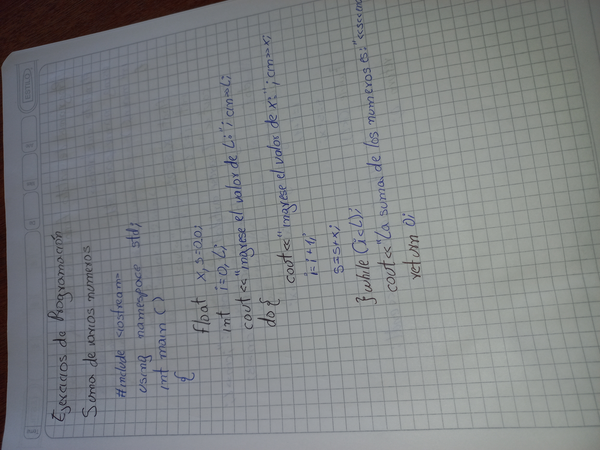 Ejercicios de Programación
Suma de varios numeros
#include <iostream>
using namespace std;
int main ()
{
float x, s=0.0;
int i=0, L;
cout <<"ingrese el valor de L:"; cin>>L;
do {
cout<<"ingrese el valor de x:"; cin>>x;
i=i+1;
s=s+x;
} while (i<L);
cout<<"La suma de los numeros es:"<<s<<
return 0;